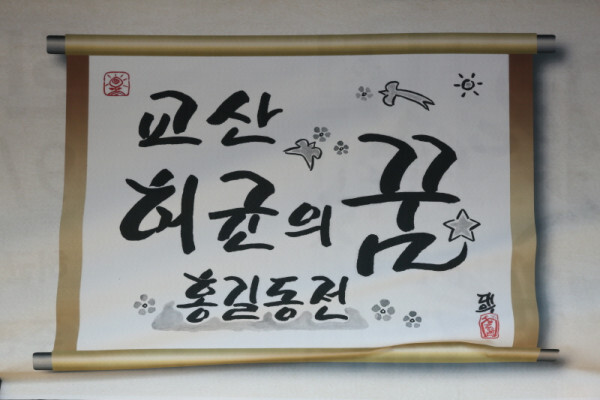 교산
허균의 꿈
홍길동전